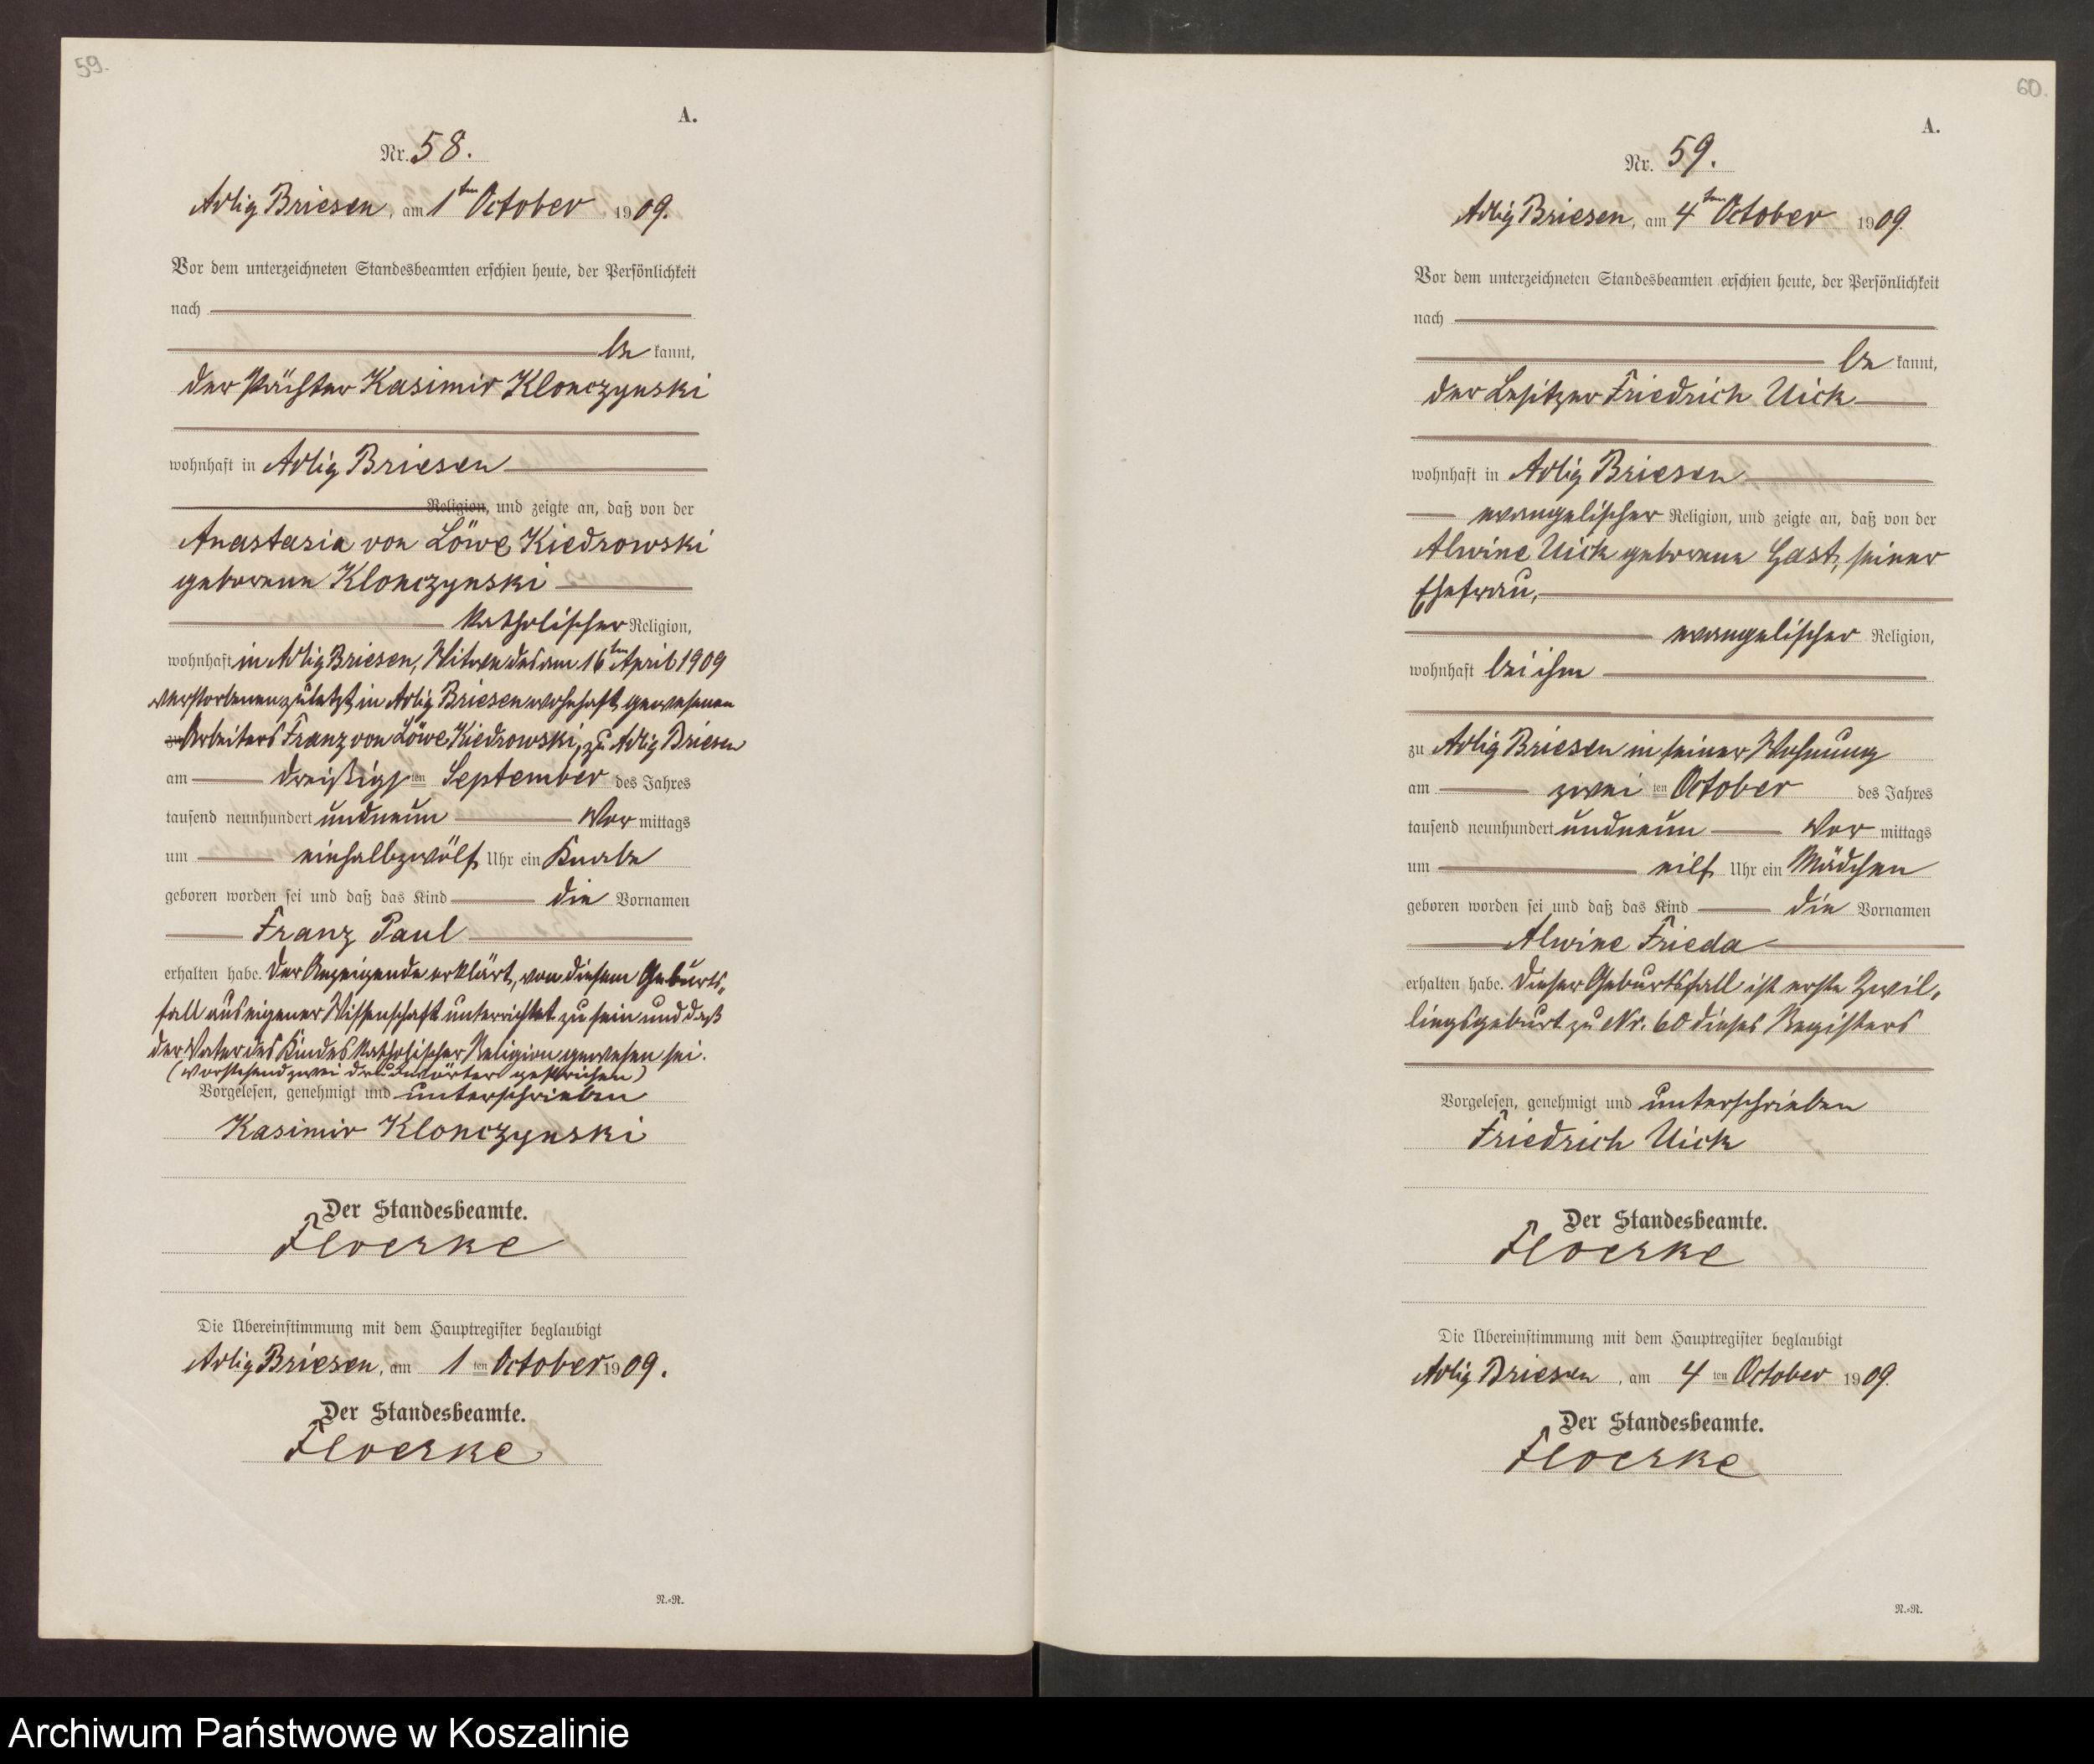 59.
A.
Nr. 58.
Adlig Briesen, am 1ten October 1909.
Vor dem unterzeichneten Standesbeamten erschien heute, der Persönlichkeit
nach
be kannt,
der Pächter Kasimir Klonczynski
wohnhaft in Adlig Briesen
Religion, und zeigte an, daß von der
Anastasia von Löwe Kiedrowski
geborene Klonczynski
katholischer Religion,
wohnhaft in Adlig Briesen, Witwe des am 16ten April 1909
verstorbenen zuletzt in Adlig Briesen wohnhaft gewesenen
zu Arbeiters Franz von Löwe Kiedrowski, zu Adlig Briesen
am dreißigsten September des Jahres
tausend neunhundert undneun Vor mittags
um einhalbzwölf Uhr ein Knabe
geboren worden sei und daß das Kind die Vornamen
Franz Paul
erhalten habe. Der Anzeigende erklärt, von diesem Geburts-
fall aus eigener Wissenschaft unterrichtet zu sein und daß
der Vater des Kindes katholischer Religion gewesen sei.
(Vorstehend zwei Druckwörter gestrichen)
Vorgelesen, genehmigt und unterschrieben
Kasimir Klonczynski
Der Standesbeamte.
Floerke
Die Übereinstimmung mit dem Hauptregister beglaubigt
Adlig Briesen, am 1 ten October 1909.
Der Standesbeamte.
Floerke
N.=R.
60.
A.
Nr. 59.
Adlig Briesen, am 4ten October 1909.
Vor dem unterzeichneten Standesbeamten erschien heute, der Persönlichkeit
nach
be kannt,
der Besitzer Friedrich Uick
wohnhaft in Adlig Briesen
evangelischer Religion, und zeigte an, daß von der
Alwine Uick geborene Gast, seiner
Ehefrau,
evangelischer Religion,
wohnhaft bei ihm
zu Adlig Briesen in seiner Wohnung
am zwei ten October des Jahres
tausend neunhundert undneun Vor mittags
um eilf Uhr ein Mädchen
geboren worden sei und daß das Kind die Vornamen
Alwine Frieda
erhalten habe. Dieser Geburtsfall ist erste Zwil-
lingsgeburt zu Nr. 60 dieses Registers
Vorgelesen, genehmigt und unterschrieben
Friedrich Uick
Der Standesbeamte.
Floerke
Die Übereinstimmung mit dem Hauptregister beglaubigt
Adlig Briesen, am 4 ten October 1909.
Der Standesbeamte.
Floerke
N.=R.
Archiwum Państwowe w Koszalinie